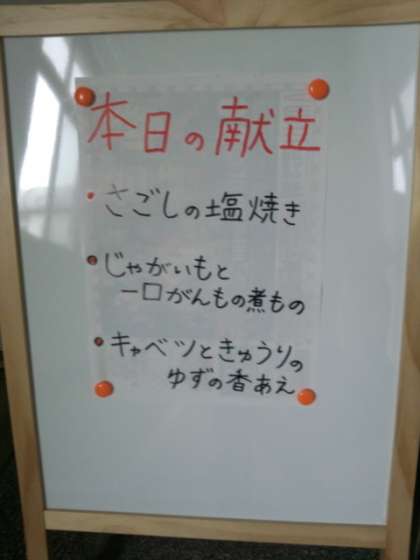 本日の献立
・さごしの塩焼き
・じゃがいもと
一口がんもの煮もの
・キャベツときゅうりの
ゆずの香あえ